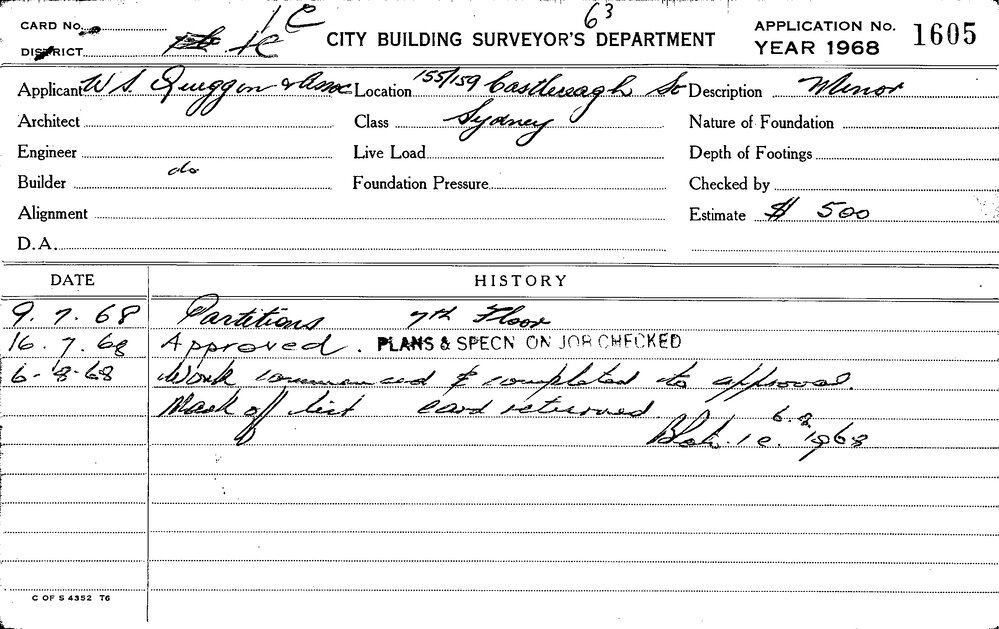 1C 63
CARD No.
DISTRICT 1C CITY BUILDING SURVEYOR'S DEPARTMENT APPLICATION No. 1605
YEAR 1968
Applicant W S. Quiggin & Assoc Location 155/159 Castlereagh St Description Minor
Architect Class Sydney Nature of Foundation
Engineer Live Load Depth of Footings
Builder do Foundation Pressure Checked by
Alignment Estimate $ 500
D.A.
DATE HISTORY
9. 7. 68 Partitions 7th Floor
16. 7. 68 Approved. PLANS & SPECN ON JOB CHECKED
6-8-68 Work commenced & completed to approval.
Mark off list card returned.
1c. 6.8.1968
C OF S 4352 T6